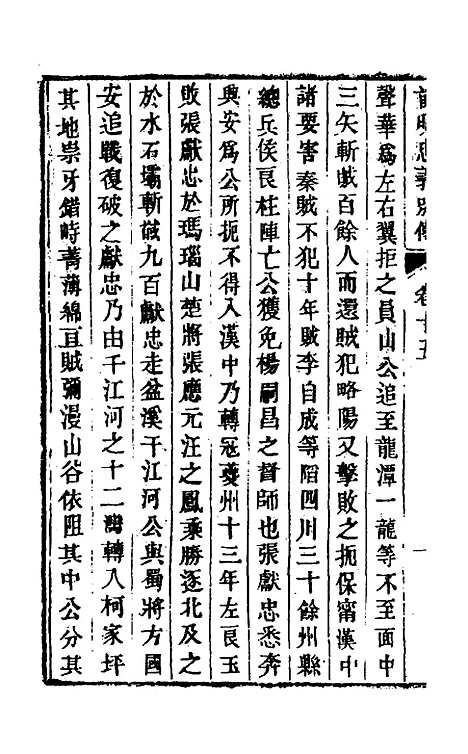 前明忠義別傳 卷十五 一
聲華爲左右翼拒之員山公追至龍潭一龍等不至面中
三矢斬賊百餘人而還賊犯略陽又擊敗之扼保甯漢中
諸要害秦賊不犯十年賊李自成等陷四川三十餘州縣
總兵侯良柱陣亡公獲免楊嗣昌之督師也張獻忠悉奔
興安爲公所扼不得入漢中乃轉冦夔州十三年左良玉
敗張獻忠於瑪瑙山楚將張應元汪之鳳乘勝逐北及之
於水石壩斬馘九百獻忠走盆溪干江河公與蜀將方國
安追戰復破之獻忠乃由千江河之十二灣轉入柯家坪
其地崇牙錯峙菁薄綿亘賊彌漫山谷依阻其中公分其